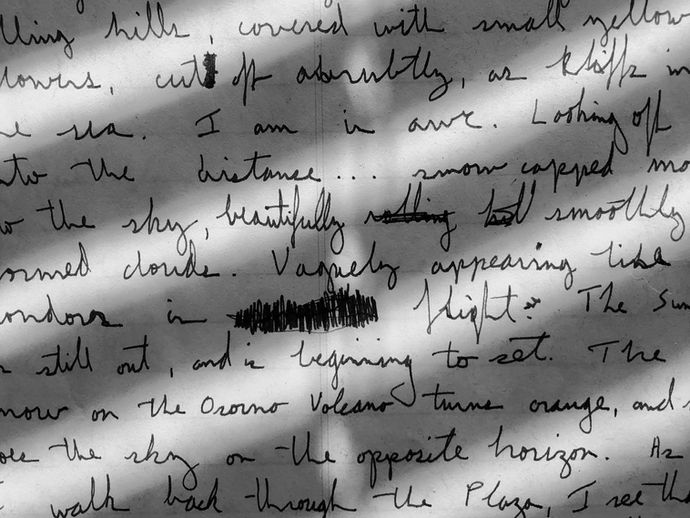 lling hills, covered with small yellow
lowers, cut off abrubtly, as kliffs in
he sea. I am in awe. Looking off
nto the distanse... snow capped mo
w the sky, beautifully rolling smoothly
ormed clouds. Vaguely appearing like
ondors in flight. The Sun
s still out, and is beginning to set. The
now on the Osorno Volcano turns orange, and s
oes the sky on the opposite horizon. As
I walk back through the Plaza, I see tha